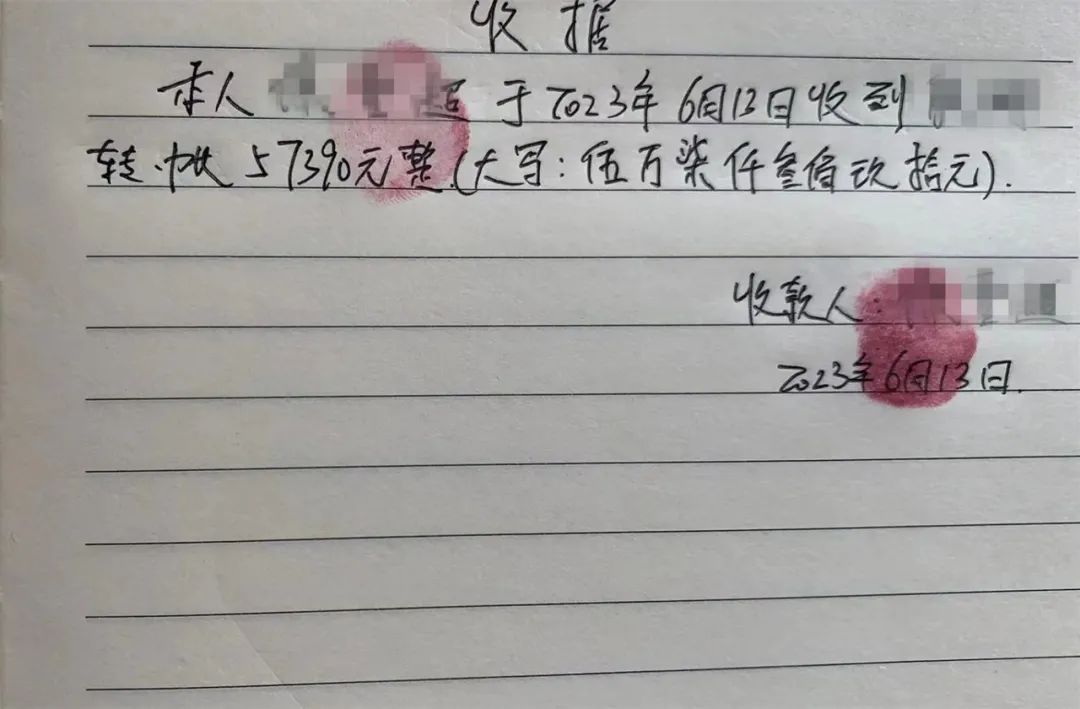 收据
本人 超于2023年6月13日收到
转账 57390元整(大写:伍万柒仟叁佰玖拾元).
收款人:
2023年6月13日.